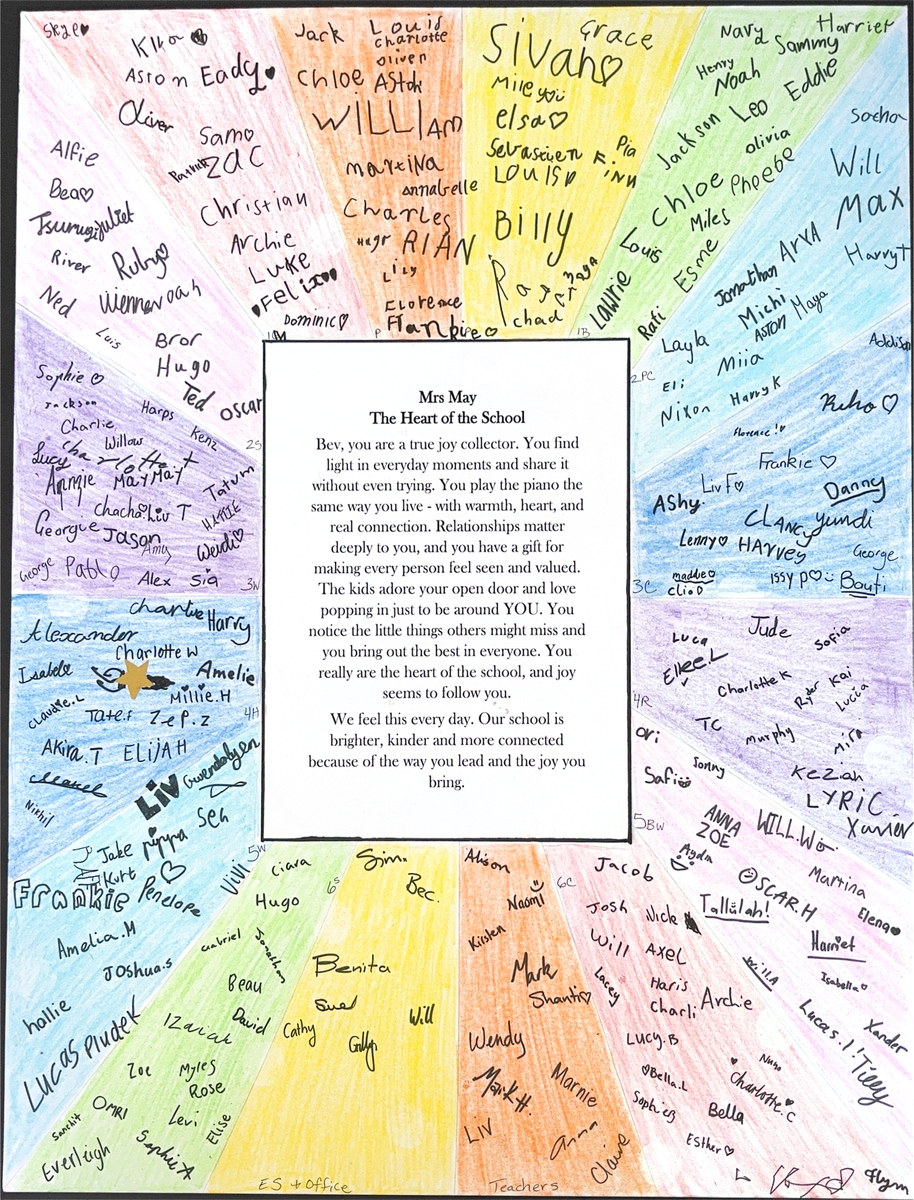 Skye
Kiko
Aston Eady
Oliver
Sam
Patrick ZAC
Christian
Archie
Luke
Felix
Dominic
1M
Jack Louis
Charlotte
Oliver
Chloe Aston
WILLIAM
martina
annabelle
Charles
Hugr RIAN
Lily
Florence
Frankie
P
Grace
Sivan
Mile you
elsa
Sebastien
LOUIS
Pia
Finn
Billy
Roger
maya
chad
1B
Navy Harriet
Sammy
Henry
Noah Eddie
Jackson Leo
olivia
Chloe Phoebe
Miles
Louis
Esme
Lawrie
Rafi
Sacha
Will
Max
Arya
HarryT
Jonathan
Michi Maya
Aston
Layla
Miia
Eli
Harry K
Nixon
2PC
Alfie
Bea
Tsumugi juliet
River Ruby
Ned Wenner noah
Luis
Bror
Hugo
Ted oscar
2S
Sophie
Jackson Harps
Charlie
Willow Kenz
Lucy Charlotte
Anngie May May
Tatum
Chacha Liv T
Georgie HATTIE
Jason
Amy Wendi
George Pablo
Alex Sia
3W
Addison
Riho
florence!
Frankie
Liv F
Danny
AShy.
CLANCy yundi
Lenny
HArvey George
maddie
clio D issy p Bauti
3C
Mrs May
The Heart of the School
Bev, you are a true joy collector. You find
light in everyday moments and share it
without even trying. You play the piano the
same way you live - with warmth, heart, and
real connection. Relationships matter
deeply to you, and you have a gift for
making every person feel seen and valued.
The kids adore your open door and love
popping in just to be around YOU. You
notice the little things others might miss and
you bring out the best in everyone. You
really are the heart of the school, and joy
seems to follow you.
We feel this every day. Our school is
brighter, kinder and more connected
because of the way you lead and the joy you
bring.
charlie Harry
Alexander
Charlotte W
Isabelle Amelie
Claudie.L Millie.H
Tate.F Zep.z
4H
Akira.T ELIJAH
Nikhil
Luca Jude Sofia
Elle L
Charlotte K Ryder Kai
Lucia
TC Murphy
Mira
Keziah
LYRiC
Xavier
4R
Liv Gwendolyen
Seh
Jake pippa
Kurt
Frankie Penelope
Vivi
Amelia.M
JOshua.s
hallie
LUCAS PIudek
5W
Ori
Safi Sonny
ANNA
ZOE WILL.W
Aydin
Martina
OSCAR.H
Tallulah! Elena
Harriet
Will A Isabella
Lucas.I! Xander
Tilly
Flynn
5BW
Ciara
Hugo
Gabriel Jonathan
Beau
Izaick David
Zoe Myles
Rose
Sanchit OMRI Levi
Elise
Everleigh Sophie
6S
Sim.
Bec.
Benita
Sue
Cathy Will
Gilly
ES + Office
Alison
Naomi
Kirsten
Mark
Shanti
Wendy
Mark H.
Marnie
LIV
anna
Claire
Teachers
6C
Jacob
Josh Nick
Will AXEL
Lacey Haris
Charli Archie
Lucy.B
Nuno
Bella.L Charlotte.C
Sophie
Bella
Esther